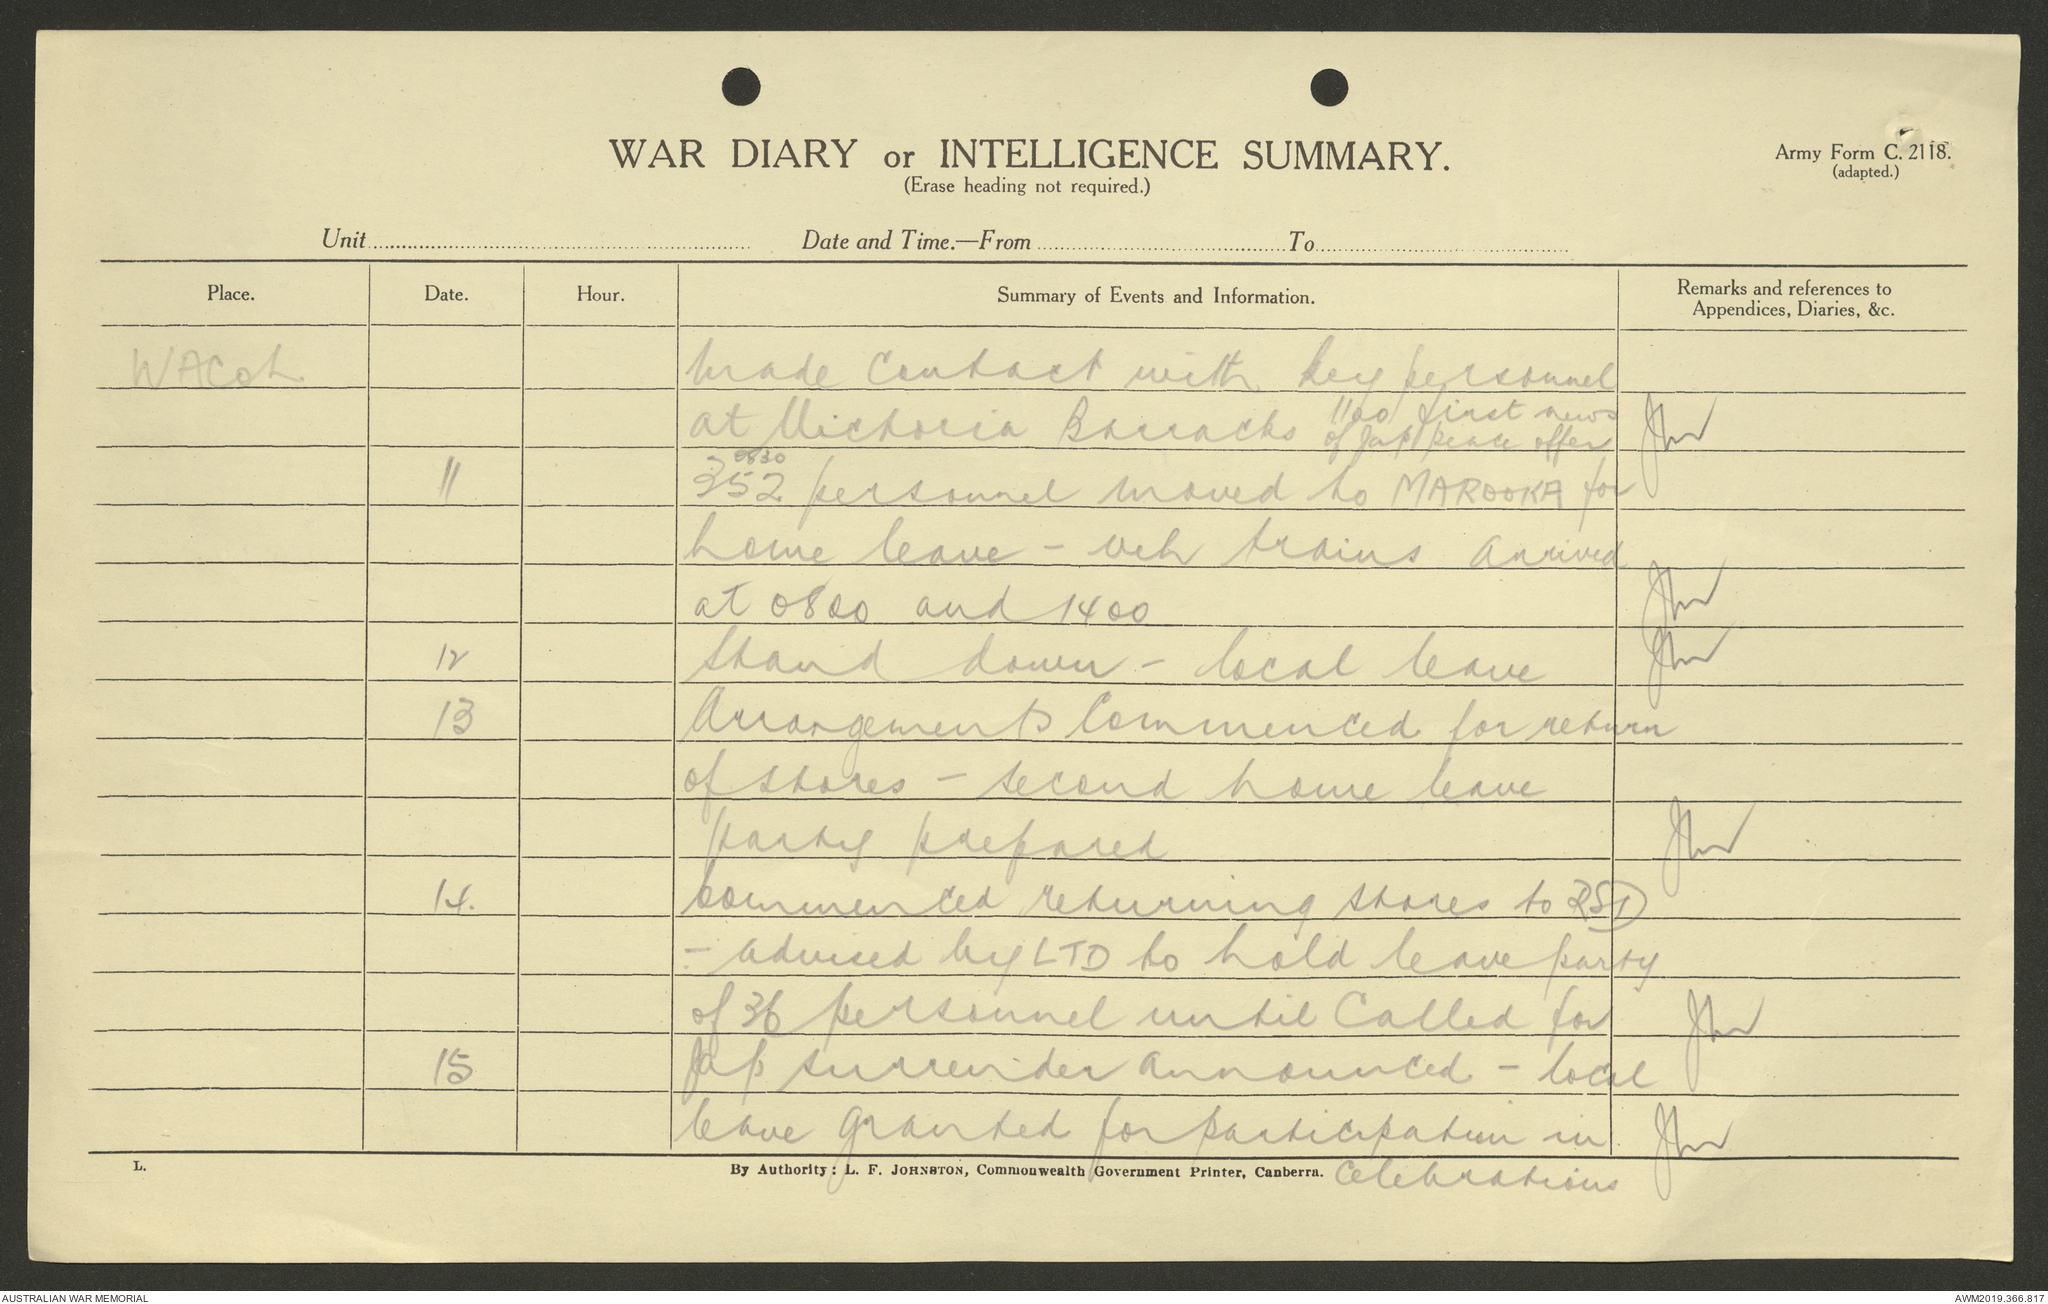 WAR DIARY or INTELLIGENCE SUMMARY.
Army Form C. 2118.
(adapted.)
(Erase heading not required.)
Unit
Date and Time.—From
To
Place.
Date.
Hour.
Summary of Events and Information.
Remarks and references to
Appendices, Diaries, &c.
WACOL
made contact with key personnel
at Victoria Barracks 1100 first news
of Jap peace offer
11
0830
352 personnel moved to MAROOKA for
home leave - veh trains arrived
at 0800 and 1400
12
Stand down - local leave
13
Arrangements commenced for return
of stores - second home leave
party prepared
14.
Commenced returning stores to RSD
- advised by LTD to hold leave party
of 36 personnel until called for
15
Jap surrender announced - local
leave granted for participation in
celebrations
L.
By Authority: L. F. JOHNSTON, Commonwealth Government Printer, Canberra.
AUSTRALIAN WAR MEMORIAL
AWM2019.366.817